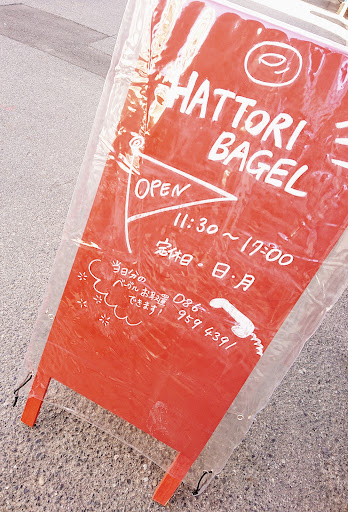 HATTORI
BAGEL
OPEN
11:30～17:00
定休日・日・月
当日分の
ベーグルお取置
できます！
086-
959 4391